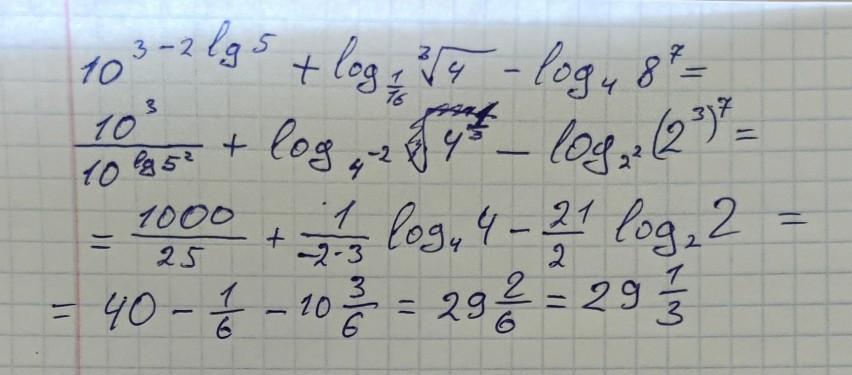 10^{3-2 lg 5} + log_{1/16} ∛4 - log_4 8^7 =
10^3/10^{lg 5^2} + log_{4^{-2}} 4^{1/3} - log_{2^2} (2^3)^7 =
= 1000/25 + 1/(-2·3) log_4 4 - 21/2 log_2 2 =
= 40 - 1/6 - 10 3/6 = 29 2/6 = 29 1/3